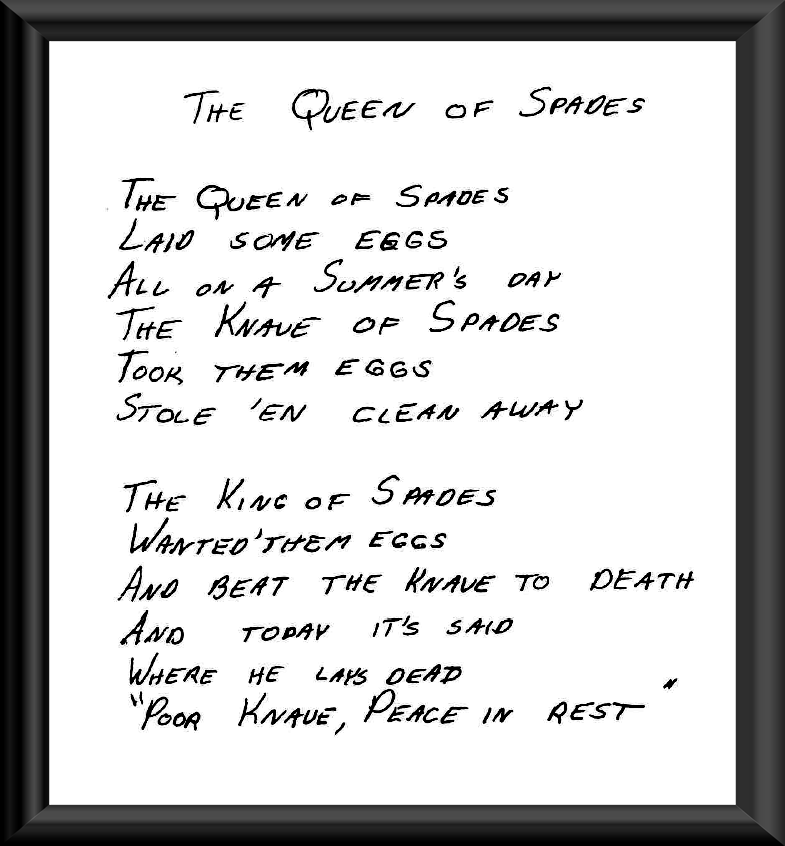 THE QUEEN OF SPADES
THE QUEEN OF SPADES
LAID SOME EGGS
ALL ON A SUMMER'S DAY
THE KNAVE OF SPADES
TOOK THEM EGGS
STOLE 'EN CLEAN AWAY
THE KING OF SPADES
WANTED 'THEM EGGS
AND BEAT THE KNAVE TO DEATH
AND TODAY IT'S SAID
WHERE HE LAYS DEAD
"POOR KNAVE, PEACE IN REST"